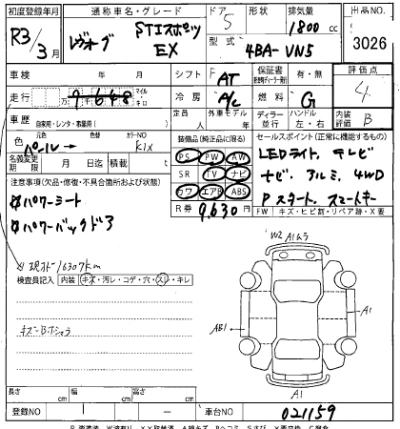 初度登録年月 通称車名・グレード ドア 形状 排気量 出品NO.
R3/3月 レヴォーグ STIスポーツ EX 5 1800 cc 3026
型式 4BA-VN5
車検 年 月 シフト F AT 保証書 有・無 評価点
走行 マイル キロ 冷房 A/C 燃料 G 4
車歴 自家用・レンタ・教習車( ) 定員 人 外車モデル 年 ディーラー 並行 ハンドル 左・右 内装評価 B
色 元色 パール 色替 カラーNO K1X
装備品(純正品に限る) セールスポイント(正常に機能するもの)
名義変更期限 月 日迄 積載 t
PS PW AW
SR TV ナビ
カワ エアB ABS
LEDライト、テレビ
ナビ、アルミ、4WD
Pスタート、スマートキー
注意事項(欠品・修復・不具合箇所および状態)
R券 9,630 円
FW キズ・ヒビ割・リペア跡・X要
パワーシート
パワーバックドア
現メーター 16307km
検査員記入 内装 キズ・汚レ・コゲ・穴・スレ・キレ
W2 A1
A1
AB1
A1
長さ cm 幅 cm 高さ cm
登録NO 車台NO 021159